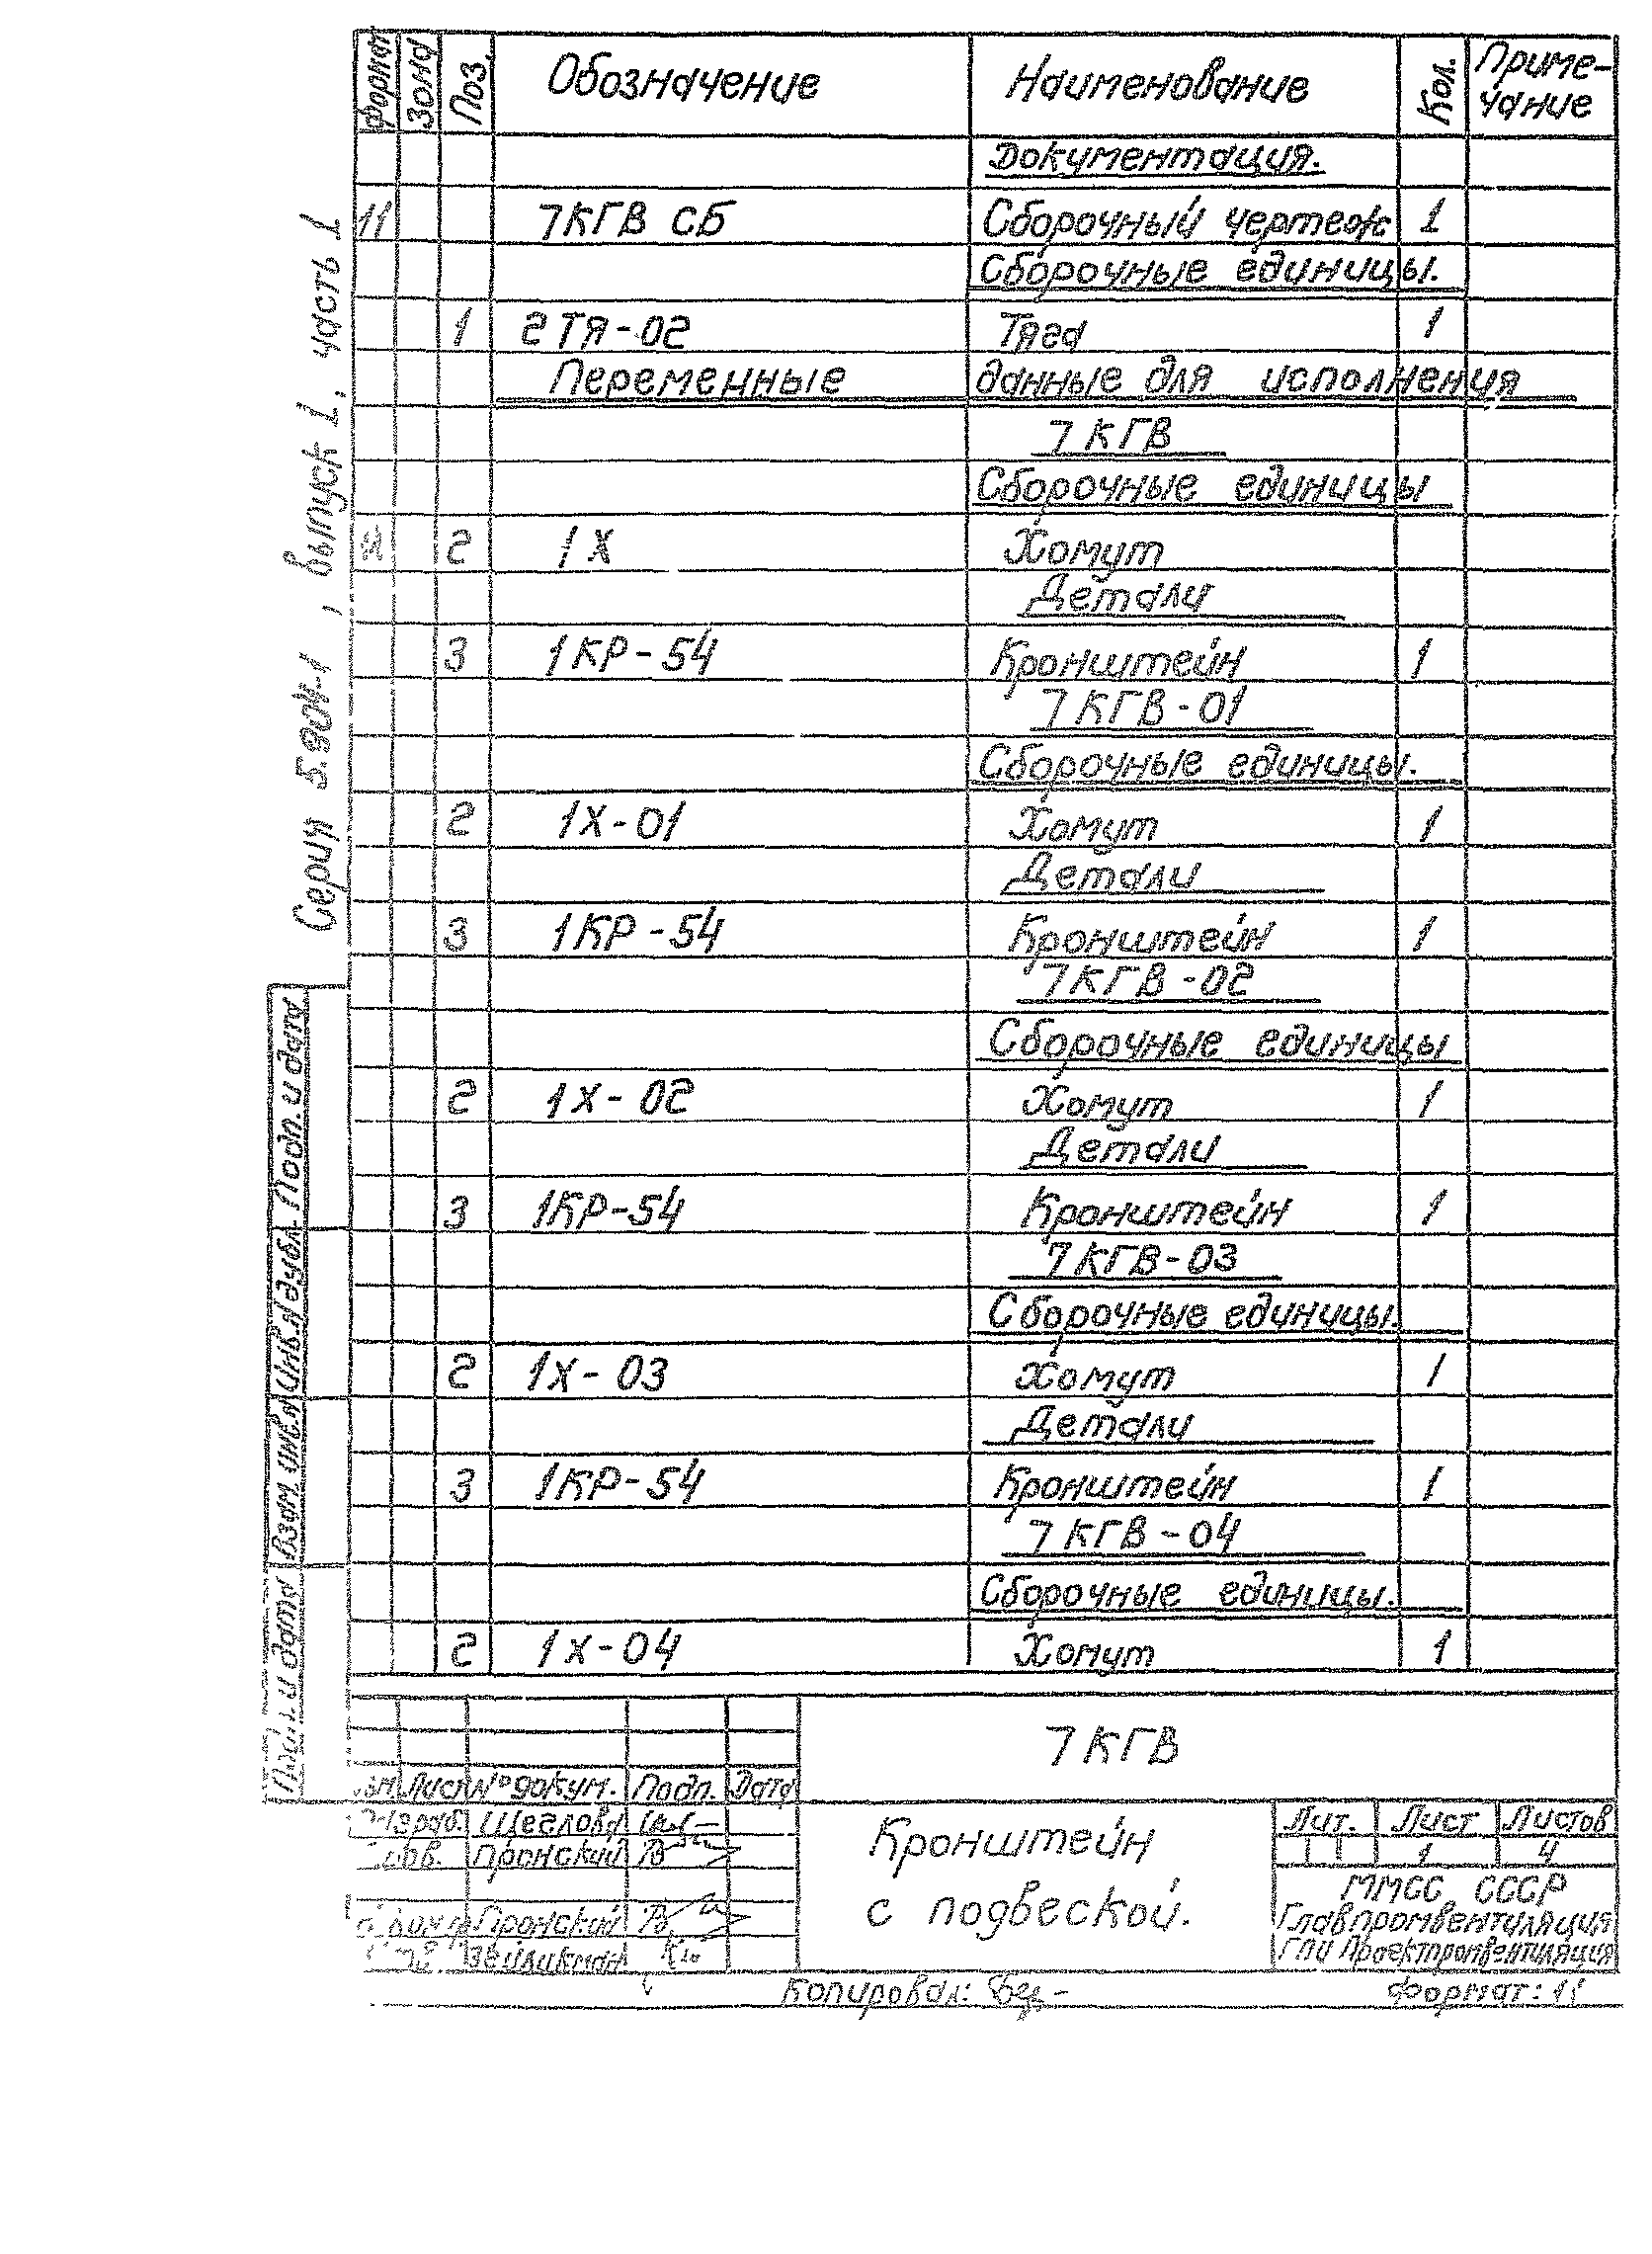 Формат Зона Поз. Обозначение Наименование Кол. Приме-
чание
Документация.
11 7КГВ СБ Сборочный чертеж 1
Сборочные единицы.
1 2ТЯ-02 Тяга 1
Переменные данные для исполнения
7КГВ
Сборочные единицы
11 2 1Х Хомут
Детали
3 1КР-54 Кронштейн 1
7КГВ-01
Сборочные единицы.
2 1Х-01 Хомут 1
Детали
3 1КР-54 Кронштейн 1
7КГВ-02
Сборочные единицы
2 1Х-02 Хомут 1
Детали
3 1КР-54 Кронштейн 1
7КГВ-03
Сборочные единицы.
2 1Х-03 Хомут 1
Детали
3 1КР-54 Кронштейн 1
7КГВ-04
Сборочные единицы.
2 1Х-04 Хомут 1
Серия 5.904-1, выпуск 1, часть 1
Подп. и дата
Инв.№ дубл.
Взам. инв.№
Подп. и дата
7КГВ
Лист № докум. Подп. Дата
Разраб. Щеглова
Пров. Пронский
Пронский
Зейликман
Кронштейн
с подвеской.
Лит. Лист Листов
1 4
ММСС СССР
Главпромвентиляция
ГПИ Проектпромвентиляция
Копировал:
Формат: 11